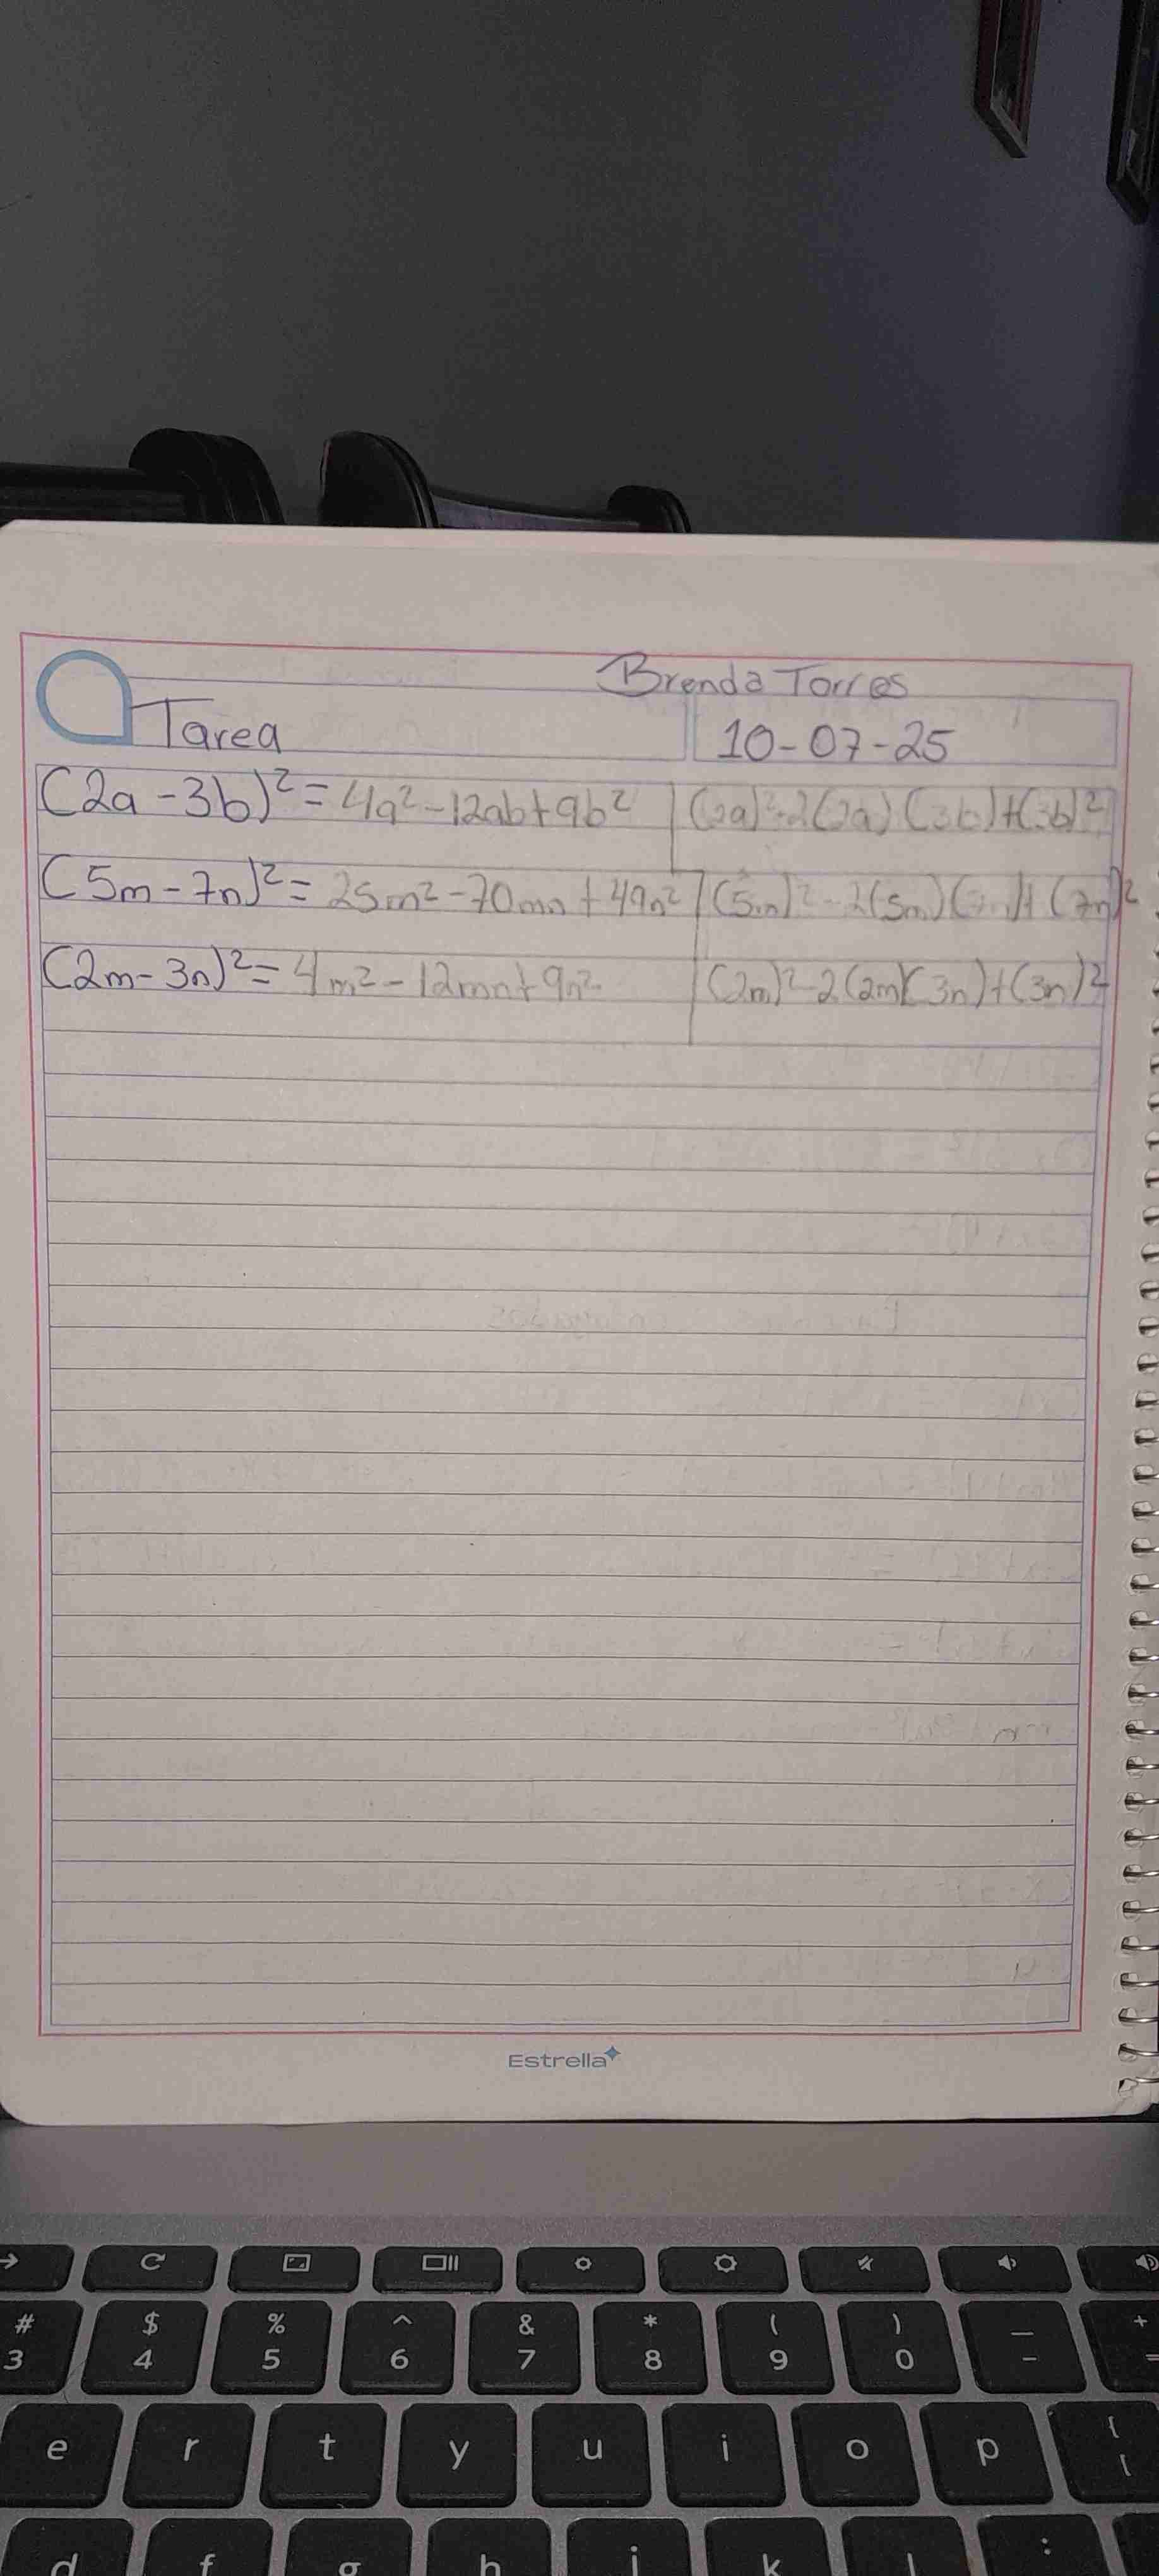 Brenda Torres
Tarea
10-07-25
(2a-3b)²=4a²-12ab+9b² (2a)²-2(2a)(3b)+(3b)²
(5m-7n)²=25m²-70mn+49n² (5m)²-2(5m)(7n)+(7n)²
(2m-3n)²=4m²-12mn+9n² (2m)²-2(2m)(3n)+(3n)²
Estrella
# $ % ^ & * ( ) _ +
3 4 5 6 7 8 9 0 - =
e r t y u i o p { [
d f g h j k l :